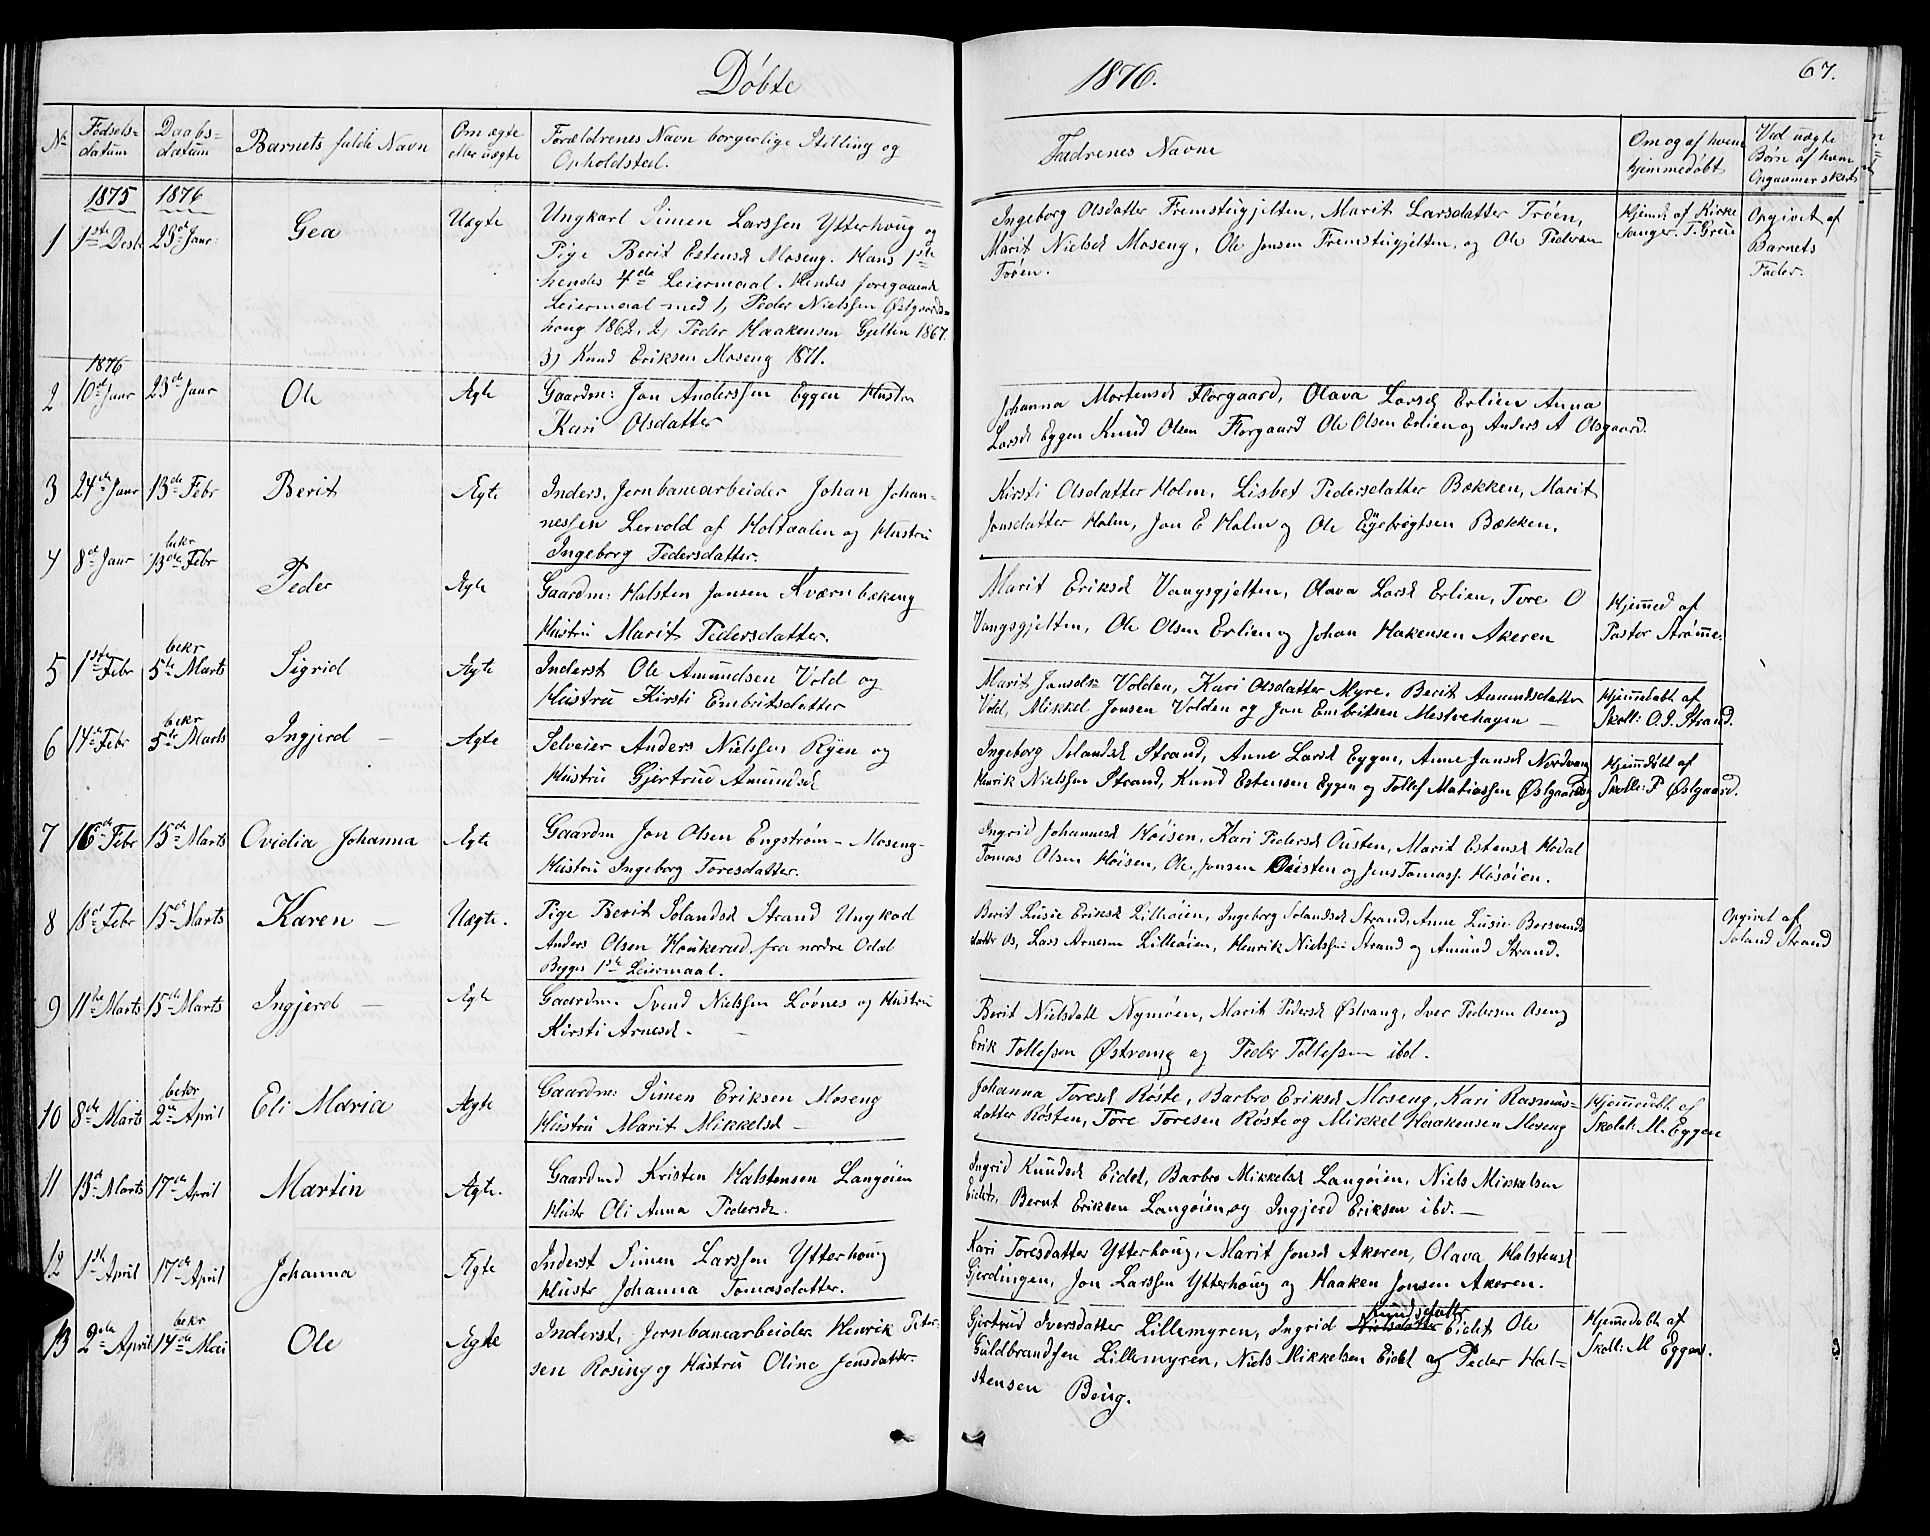 Döbte 1876. 67.
No Fødsels-datum Daabs-datum Barnets fulde Navn Om ægte eller uægte Forældrenes Navn borgerlige Stilling og Opholdsted. Fadrenes Navne Om og af hvem hjemmedöbt Ved uægte Børn af hvem Opgaaven er skeet
1875 1876
1 1ste Decbr 23de Janr. Gea Uægte Ungkarl Simen Larssen Ytterhoug og
Pige Berit Estensd Moseng. Hans 1ste
hendes 4de Leiermaal. Hendes foregaaende
Leiermaal med 1, Peder Nielssen Østgaards-
houg 1862. 2, Peder Haakensen Gjelten 1867.
3) Knud Eriksen Moseng 1871.
Ingeborg Olsdatter Fremstugjelten, Marit Larsdatter Trøen,
Marit Nielsd Moseng, Ole Jonsen Fremstugjelten, og Ole Pedersen
Trøen.
Hjemd. af Kirke
sanger. T. Greue
Opgivet af
Barnets
Fader.
1876
2 10de Janr 23de Janr Ole Ægte Gaardm: Jon Anderssen Eggen Hustru
Kari Olsdatter
Johanna Mortensd Florgaard, Olava Larsd Erlien Anna
Larsd Eggen Knud Olsen Florgaard Ole Olsen Erlien og Anders A Olsgaard.
3 24de Janr 13de Febr Berit Ægte Inders, Jernbanearbeider Johan Johan-
nessen Lervold af Holtaalen og Hustru
Ingeborg Pedersdatter.
Kirsti Olsdatter Holm, Lisbet Pedersdatter Bækken, Marit
Jonsdatter Holm, Jon E Holm og Ole Engebrigtsen Bækken.
4 8de Janr bekr 13de Febr Peder Ægte Gaardm: Halsten Jonsen Kværnbækeng
Hustru Marit Pedersdatter.
Marit Eriksd Vangsgjelten, Olava Larsd Erlien, Tore O
Vangsgjelten, Ole Olsen Erlien og Johan Hakensen Akeren
Hjemmed af
Pastor Strømme.
5 1ste Febr bekr 5te Marts Sigrid Ægte Inderst Ole Amundsen Vold og
Hustru Kirsti Embritsdatter
Marit Jonsdr Volden, Kari Olsdatter Myre, Berit Amundsdatter
Vold, Mikkel Jonsen Volden og Jon Embritsen Mestvehagen —
Hjemmedøbt af
Skoll: O. J. Strand.
6 14de Febr bekr 5te Marts Ingjerd — Ægte Selveier Anders Nielssen Ryen og
Hustru Gjertrud Amundsd
Ingeborg Solandsd Strand, Anne Larsd Eggen, Anne Jonsd Nordvang
Henrik Nielssen Strand, Knud Estensen Eggen og Tollef Matiassen Østgaardseg
Hjemdøbt af
Skoll: P Østgaard.
7 16de Febr 15de Marts Ovidia Johanna Ægte Gaardm Jon Olsen Engstrøm — Moseng-
Hustru Ingeborg Toresdatter.
Ingrid Johannesd Høisen, Kari Pedersd Ousten, Marit Estensd Hodal
Tomas Olsen Høisen, Ole Jonsen Ousten og Jens Tomass. Høsøien.
8 18de Febr 15de Marts Karen — Uægte. Pige Berit Solandsd Strand Ungkarl
Anders Olsen Haukerud fra nordre Odal
Begges 1ste Leiermaal.
Berit Lusie Eriksd Lilleøien, Ingeborg Solandsd Strand, Anne Lusie Borsvends
datter Os, Lars Arnesen Lilleøien, Henrik Nielssen Strand og Amund Strand.
Opgivet af
Soland Strand
9 11te Marts 15de Marts Ingjerd — Ægte Gaardm. Svend Nielssen Løvnes og Hustru
Kirsti Arnesd. —
Berit Nielsdatt Nymoen, Marit Pedersd Østvang, Iver Pedersen Aseng
Erik Tollefsen Østvang og Peder Tollefsen ibd.
10 8de Marts bekr 2den April Eli Maria Ægte Gaardm: Simen Eriksen Moseng
Hustru Marit Mikkelsd —
Johanna Toresd Röste, Barbro Eriksd Moseng, Kari Rasmus=
datter Røsten, Tore Toresen Röste og Mikkel Haakensen Moseng
Hjemmedøbt af
Skolel: M. Eggen
11 13de Marts 17de April Martin Ægte. Gaardmd Kristen Halstensen Langøien
Hustr Oli Anna Pedersd.
Ingrid Knudsd Eidet, Barbro Mikkelsd Langøien, Niels Mikkelsen
Eidet, Bernt Eriksen Langøien, og Ingjerd Eriksen ibd. —
12 1ste April 17de April Johanna Ægte Inderst Simen Larssen Ytterhoug
Hustr Johanna Tomasdatter.
Kari Toresdatter Ytterhoug, Marit Jonsd Akeren, Olava Halstensd
Gjerdingen, Jon Larssen Ytterhoug og Haaken Jonsen Akeren.
13 2den April bekr 14de Mai Ole Ægte Inderst, Jernbanearbeider Henrik Peter-
sen Rosing og Hustru Oline Jensdatter.
Gjertrud Iversdatter Lillemyren, Ingrid Knudsdatter Nielsdatter Eidet Ole
Guldbrandsen Lillemyren, Niels Mikkelsen Eidet og Peder Hal=
stensen Beug.
Hjemmedøbt af
Skoll: M Eggen.